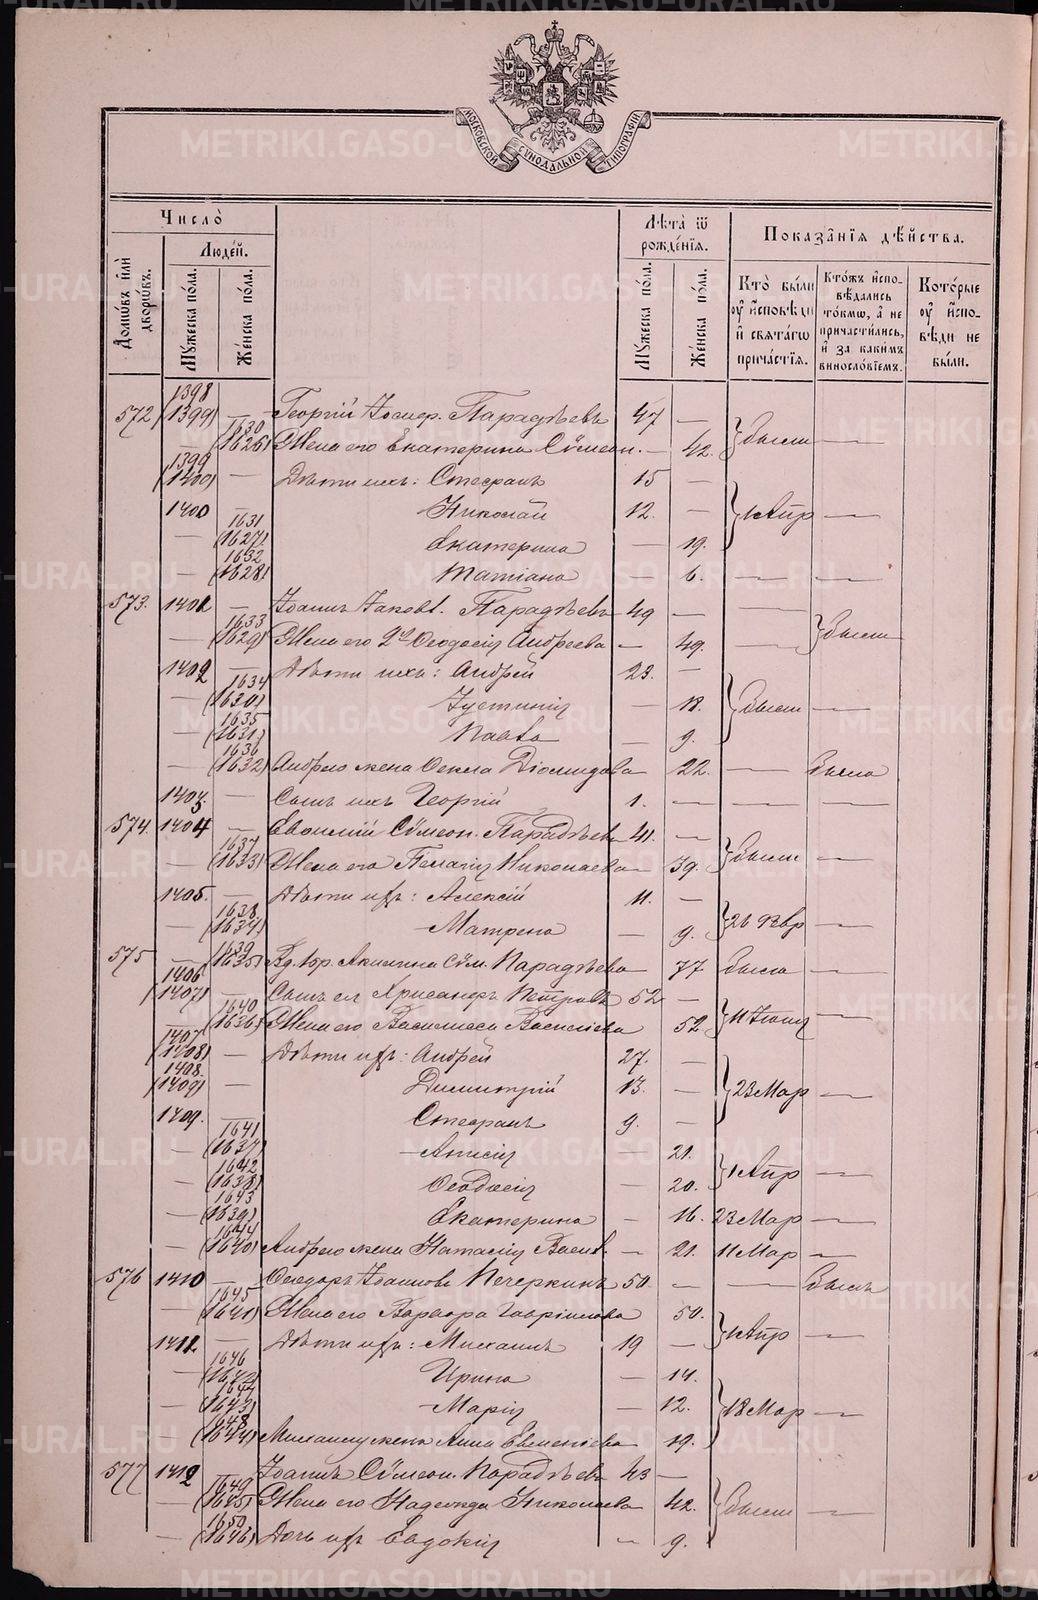 METRIKI.GASO-URAL.RU
МОСКОВСКОЙ СѴНОДАЛЬНОЙ ТИПОГРАФІИ
Число̀
Людей.
Домѡвъ илѝ дворѡвъ.
Мꙋжеска по́ла.
Же́нска по́ла.
Лѣта̀ ѿ рожде́нїѧ.
Мꙋжеска по́ла.
Же́нска по́ла.
Показа́нїѧ дѣ́йства.
Кто̀ бы́ли оу҆ и҆сповѣди и҆ свѧта́гѡ прича́стїѧ.
Кто́жъ и҆сповѣдались то́кмѡ, а҆ не причасти́лись, и҆ за какимъ винословїемъ.
Кото́рые оу҆ и҆сповѣди не бы́ли.
572 1398 (1399) — Георгій Парадѣевъ 47 — } были —
— 1630 (1626) Жена его Екатерина Сѵмеон. — 42.
1399 (1400) — Дѣти ихъ: Стефанъ 15 — } 1 Апр —
1400 — Николай 12. —
— 1631 (1627) Екатерина — 19.
— 1632 (1628) Татіана — 6. — —
573. 1401 — Іоаннъ Іаковл. Парадѣевъ 49 — — } были
— 1633 (1629) Жена его 2я Ѳеодосія Андреева — 49. —
1402 — Дѣти ихъ: Андрей 23. — } были —
— 1634 (1630) Іустинія — 18.
— 1635 (1631) Павла — 9.
— 1636 (1632) Андрею жена Ѳекла Діомидова 22. — была
1403. — Сынъ ихъ Георгій 1. — — —
574. 1404 — Евѳимій Сѵмеон. Парадѣевъ 41. — } были —
— 1637 (1633) Жена его Пелагія Николаева 39.
1405. — Дѣти ихъ: Алексій 11. — } 26 Февр —
— 1638 (1634) Матрена — 9.
575 — 1639 (1635) Вд. Акилина Сѵм. Парадѣева 77 была —
1406 (1407) — Сынъ ея Хрисанфъ Петровъ 52 — } —
— 1640 (1636) Жена его Василисса Василіева 52
1407 (1408) — Дѣти ихъ: Андрей 27. — } 23 Мар —
1408. (1409) — Димитрій 13. —
1409. — Стефанъ 9. —
— 1641 (1637) Анисія — 21. } 1 Апр —
— 1642 (1638) Ѳеодосія — 20.
— 1643 (1639) Екатерина — 16. 23 Мар —
— 1644 (1640) Андрею жена Наталія Васил. — 21. 11 Мар —
576 1410 — Ѳеодоръ Іоанновъ Печеркинъ 50. — — былъ
— 1645 (1641) Жена его Варвара Гавріилова 50. } 1 Апр —
1411 — Дѣти ихъ: Михаилъ 19 —
— 1646 (1642) Ирина — 14. } 18 Мар —
— 1647 (1643) Марія — 12.
— 1648 (1644) Михаилу жена Анна Евменіева 19.
577 1412 — Іоаннъ Сѵмеон. Парадѣевъ 43 — } были —
— 1649 (1645) Жена его Надежда Николаева 42.
— 1650 (1646) Дочь ихъ Евдокія — 9.